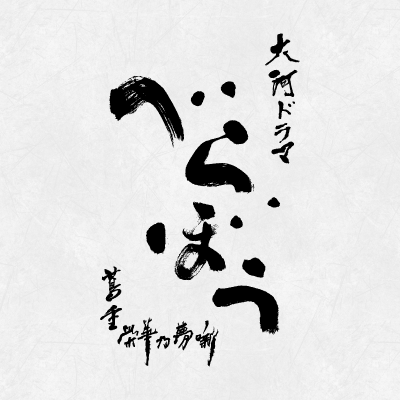 大河ドラマ
べらぼう
蔦重栄華乃夢噺